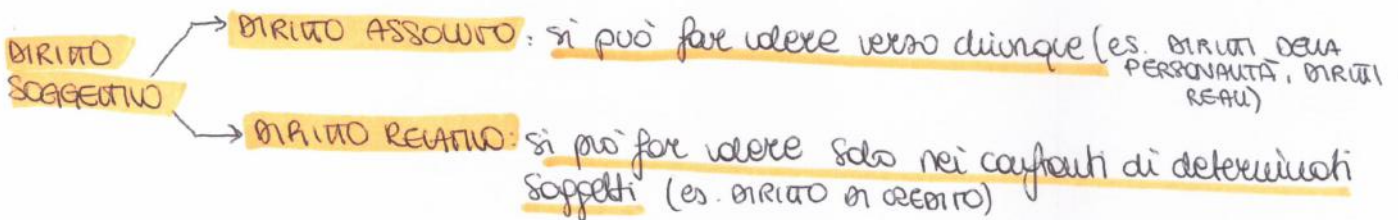 DIRITTO
SOGGETTIVO
DIRITTO ASSOLUTO: si può far valere verso chiunque (es. DIRITTI DELLA
PERSONALITÀ, DIRITTI
REALI)
DIRITTO RELATIVO: si può far valere solo nei confronti di determinati
soggetti (es. DIRITTO DI CREDITO)